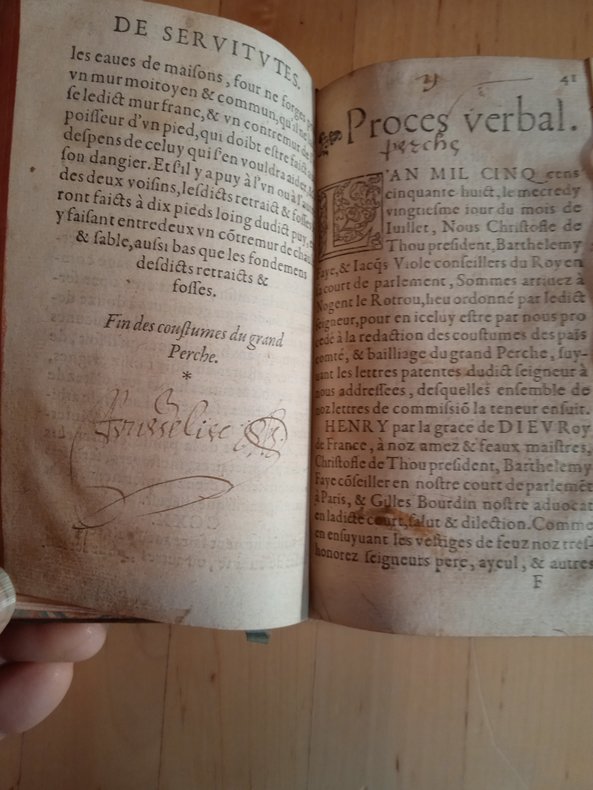 DE SERVITVTES.
les eaues de maisons, four ne forges
vn mur moitoyen & commun, qu'il ne
se ledict mur franc, & vn contremur de
poisseur d'vn pied, qui doibt estre faict
despens de celuy qui s'en vouldra aider, &
son dangier. Et s'il y a puy à l'vn ou à l'autre
des deux voisins, lesdicts retraict & fosses
ront faicts à dix pieds loing dudict puy,
y faisant entredeux vn cõtremur de chau
& sable, aussi bas que les fondemens
desdicts retraicts &
fosses.
Fin des coustumes du grand
Perche.
*
41
Proces verbal.
perche
L'AN MIL CINQ cens
cinquante huict, le mecredy
vingtiesme iour du mois de
Iuillet, Nous Christofle de
Thou president, Barthelemy
Faye, & Iacq̃s Viole conseillers du Roy en
la court de parlement, Sommes arriuez à
Nogent le Rotrou, lieu ordonné par ledict
seigneur, pour en iceluy estre par nous pro
cedé à la redaction des coustumes des païs
comté, & bailliage du grand Perche, suy-
uant les lettres patentes dudict seigneur à
nous addressees, desquelles ensemble de
noz lettres de commissiõ la teneur ensuit.
HENRY par la grace de DIEV Roy
de France, à noz amez & feaux maistres,
Christofle de Thou president, Barthelemy
Faye cõseiller en nostre court de parlemẽt
à Paris, & Gilles Bourdin nostre aduocat
en ladicte court, salut & dilection. Comme
en ensuyuant les vestiges de feuz noz tres-
honorez seigneurs pere, ayeul, & autres
F